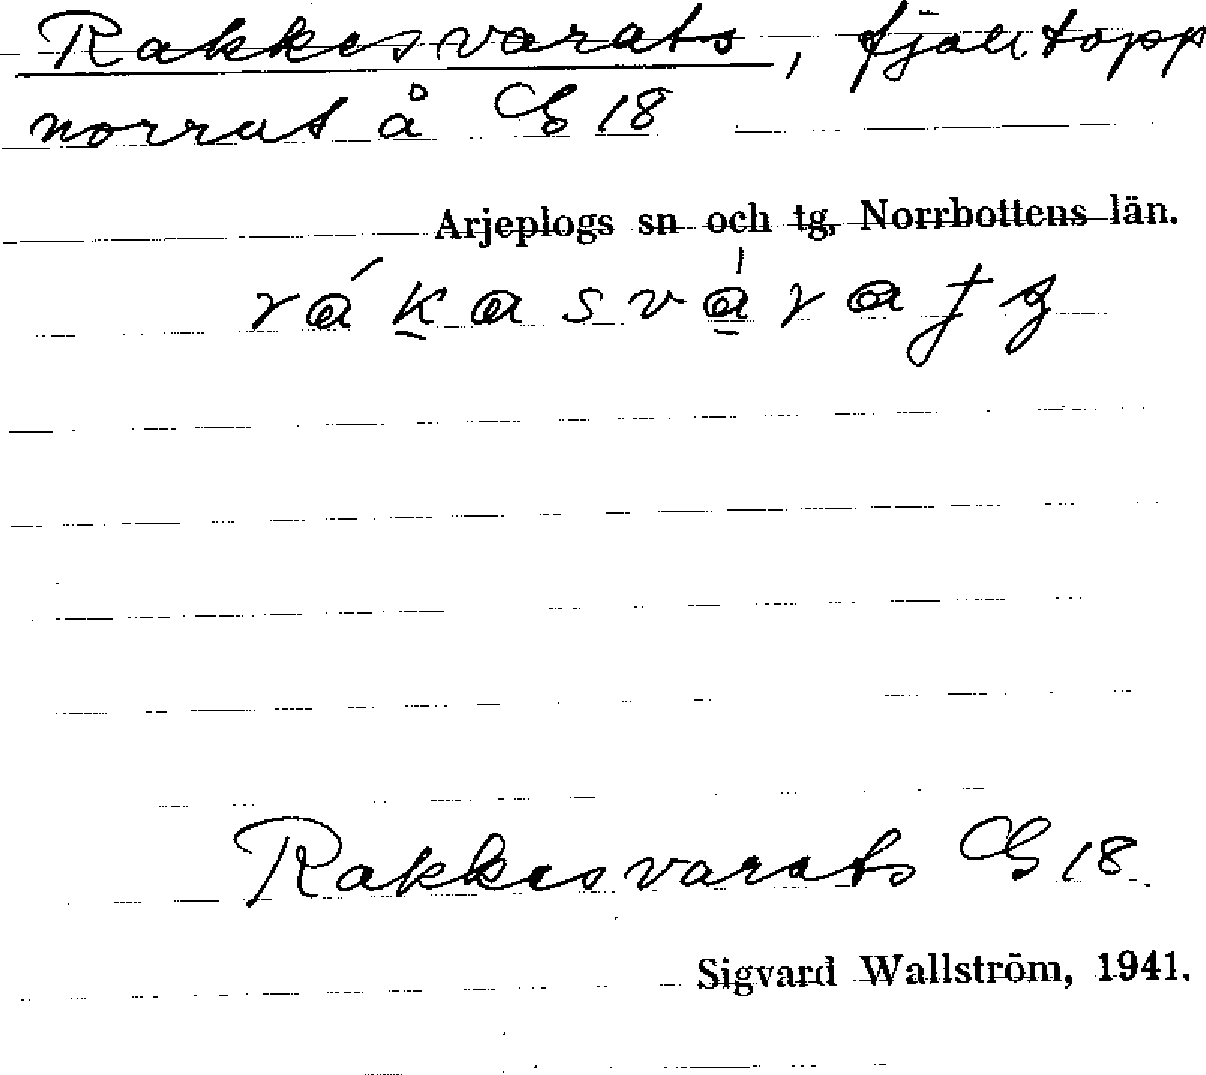 Rakkesvarats, fjälltopp
norrut å G 18
Arjeplogs sn och tg, Norrbottens län.
rákasvárats
Rakkesvarats G 18
Sigvard Wallström, 1941.